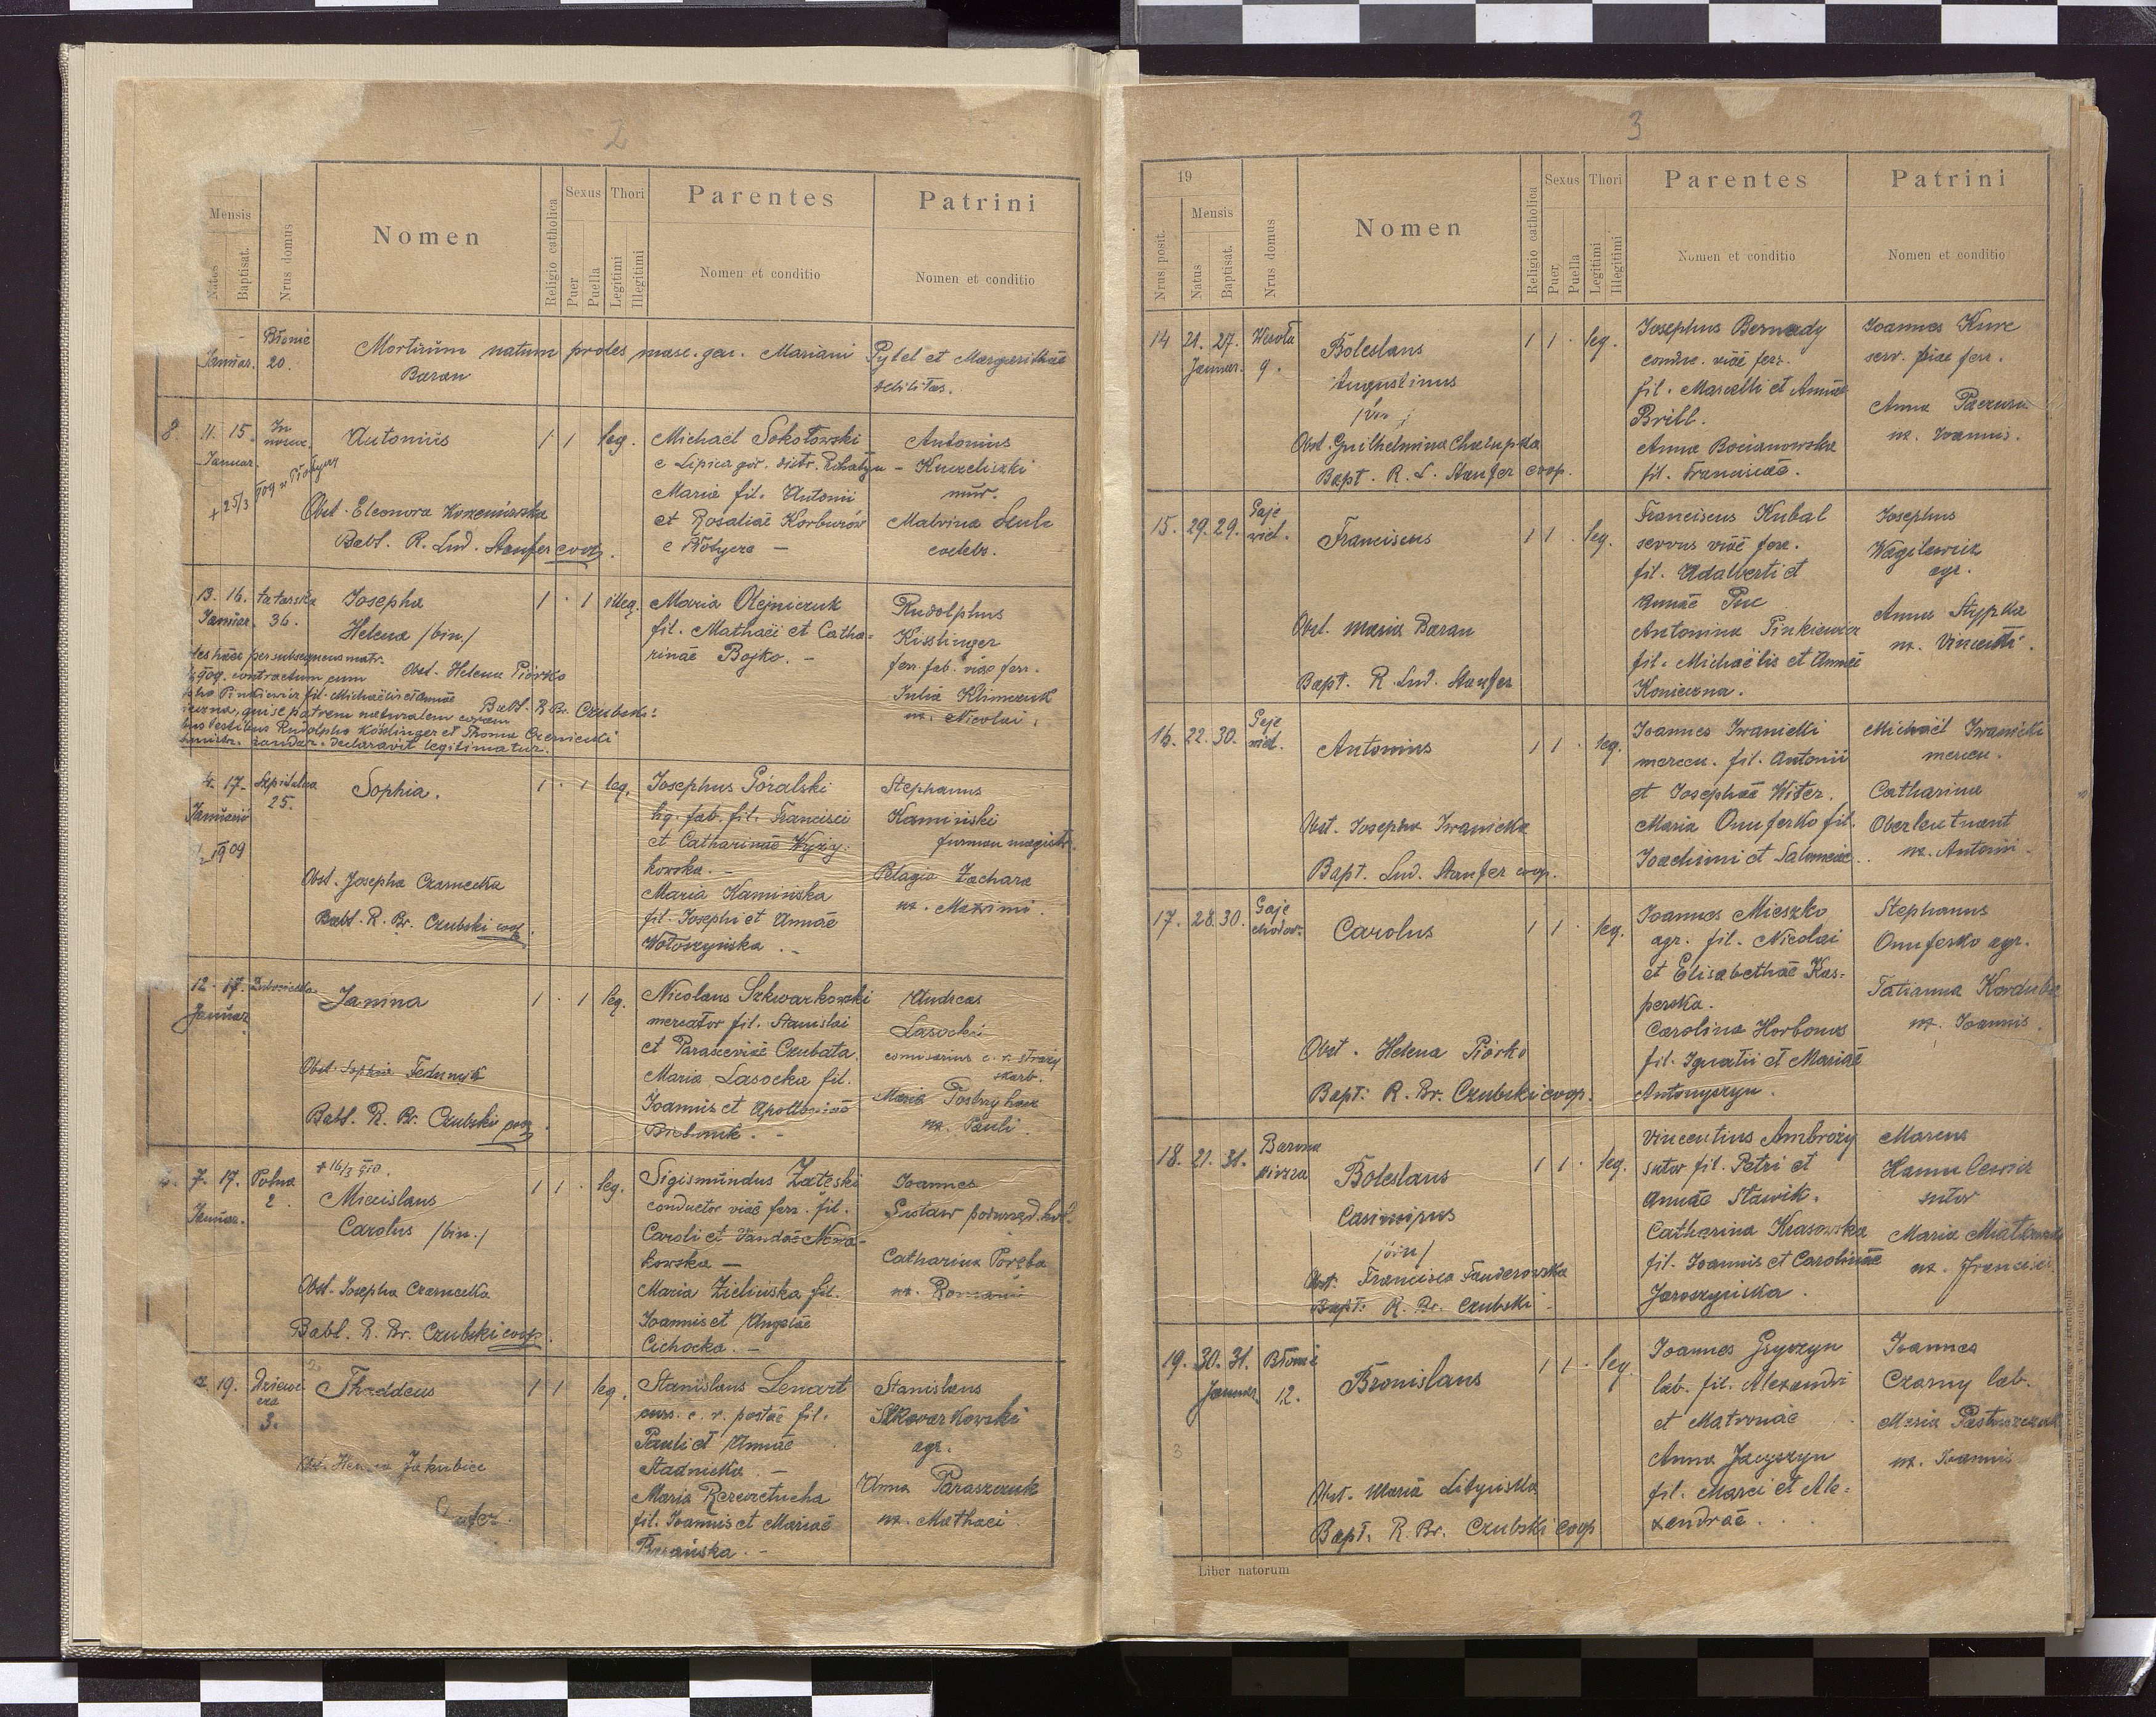 2
Mensis
Natus
Baptisat.
Nrus domus
Nomen
Religio catholica
Sexus
Puer
Puella
Thori
Legitimi
Illegitimi
Parentes
Nomen et conditio
Patrini
Nomen et conditio
Januar.
Błonie
20.
Mortuum natum proles masc. gen. Mariani Pytel et Margarithae
Baran
debilitas.
8.
11. 15.
Januar.
Antonius
1 1 leg.
+ 25/3
Obst. Eleonora
Bapt. R. Lud. Staufer coop.
Michaël Sokołowski
e Lipica gór. distr. Rohatyn
Maria fil. Antonii
et Rosaliae Korburów
Antonius
Kuczeliszki
mur.
Malvina
coelebs.
13. 16.
Januar.
tatarska
36.
Josepha
Helena /bin./
1 . 1 illeg.
per subsequens matr.
1909. contractum cum Obst. Helena Piórko
Pinkiewicz fil. Michaëlis et Annae
qui se patrem naturalem coram Bapt. R. Br. Czubski
testibus Rudolpho Kisslinger et Thoma Czernicki
declaravit legitimatur.
Maria Olejniczuk
fil. Mathaei et Catha-
rinae Bojko. -
Rudolphus
Kisslinger
ferr. fab. viae ferr.
Julia Klimczuk
ux. Nicolai.
4. 17.
Januarii
1909
Szpitalna
25.
Sophia.
1 . 1 leg.
Obst. Josepha Czarnecka
Bapt. R. Br. Czubski coop.
Josephus Góralski
lig. fab. fil. Francisci
et Catharinae Wyży-
kowska. -
Maria Kamińska
fil. Josephi et Annae
Wołoszyńska. -
Stephanus
Kamiński
furman magistr.
Pelagia Zachara
ux. Maximi.
12. 17.
Januar
Janina
1 . 1 leg.
Obst. Sophia Fedunyk
Bapt. R. Br. Czubski coop.
Nicolaus Szkwarkowski
mercator fil. Stanislai
et Parasceviae Czubata.
Maria Lasocka fil.
Joannis et Apolloniae
Andreas
Lasocki
comisarius c. r. straży
skarb.
Maria
ux. Pauli.
7. 17.
Januar.
Polna
2.
+ 16/3 910.
Miecislaus
Carolus /bin./
1 1 . leg.
Obst. Josepha Czarnecka
Bapt. R. Br. Czubski coop.
Sigismundus Załeski
conductor viae ferr. fil.
Caroli et Vandae Nowa-
kowska -
Maria Zielińska fil.
Joannis et Angelae
Cichocka. -
Joannes
Catharina Poręba
ux. Romani
19.
3.
Thaddeus
1 1 leg.
Jakubiec
Stanislaus Lenart
curs. c. r. postae fil.
Pauli et Annae
Stadnicka. -
Maria
fil. Joannis et Mariae
Stanislaus
Szkwarkowski
agr.
Anna Paraszczuk
ux. Mathaei
3
19
Nrus posit.
Mensis
Natus
Baptisat.
Nrus domus
Nomen
Religio catholica
Sexus
Puer
Puella
Thori
Legitimi
Illegitimi
Parentes
Nomen et conditio
Patrini
Nomen et conditio
14
21. 27.
Januar.
Wesoła
9.
Boleslaus
Augustinus
/bin/
Obst. Guilhelmina Chałupka
Bapt. R. L. Staufer coop.
1 1 . leg.
Josephus Bernady
condu. viae ferr.
fil. Marcelli et Annae
Brill.
Anna Bocianowska
fil. Franciscae.
Joannes Kurc
serv. viae ferr.
Anna
ux. Joannis.
15.
29. 29.
Gaje
wiel.
Franciscus
1 1 . leg.
Obst. Maria Baran
Bapt. R. Lud. Staufer
Franciscus Kubal
servus viae ferr.
fil. Adalberti et
Annae Puc
Antonina Pinkiewicz
fil. Michaëlis et Annae
Konieczna.
Josephus
Wagilewicz
agr.
Anna Stypka
ux. Vincentii.
16.
22. 30.
Gaje
Antonius
1 1 . leg.
Obst. Josepha Iwanicka
Bapt. Lud. Staufer coop.
Joannes Iwanicki
mercen. fil. Antonii
et Josephae Witer.
Maria Onuferko fil.
Joachimi et Salomeae.
Michaël Iwanicki
mercen.
Catharina
Oberleutnant
ux. Antonii.
17.
28. 30.
Gaje
chodor.
Carolus
1 1 . leg.
Obst. Helena Piórko
Bapt. R. Br. Czubski coop.
Joannes Mieszko
agr. fil. Nicolai
et Elisabethae Kas-
perska.
Carolina Horbowa
fil. Ignatii et Mariae
Antonyszyn.
Stephanus
Onuferko agr.
Tatianna Korduba
ux. Joannis.
18.
21. 31.
Boleslaus
Casimirus
/bin/
Obst. Francisca Fanderowska
Bapt. R. Br. Czubski.
1 1 . leg.
Vincentius Ambroży
sutor fil. Petri et
Annae Stawik.
Catharina Krasowska
fil. Joannis et Carolinae
Jaroszyńska.
Marcus
sutor
Maria
ux. Francisci
19.
30. 31.
Januar
Błonie
12.
Bronislaus
1 1 . leg.
3
Obst. Maria Lityńska
Bapt. R. Br. Czubski coop
Joannes Gryczyn
lab. fil. Alexandri
et Matronae
Anna Jacyszyn
fil. Marci et Ale-
xandrae.
Joannes
Czarny lab.
Maria Pastuszczuk
ux. Joannis
Liber natorum